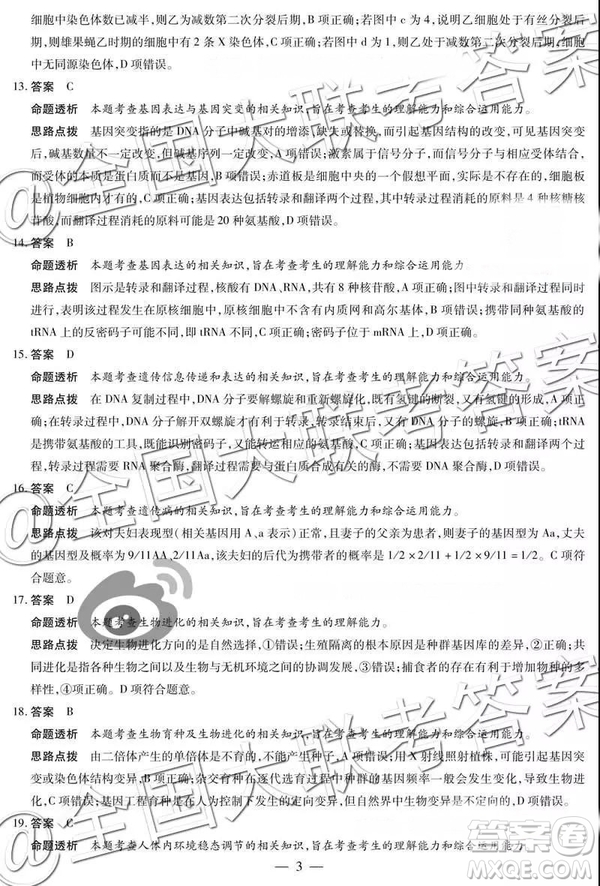 细胞中染色体数已减半，则乙为减数第二次分裂后期，B项正确；若图中c为4，说明乙处于有丝分裂后
期，则雄果蝇乙时期的细胞中有2条X染色体，C项正确；若图中d为1，则乙处于减数第二次分裂后期，细胞
中无同源染色体，D项错误。
13. 答案 C
命题透析 本题考查基因表达与基因突变的相关知识，旨在考查考生的理解能力和综合运用能力。
思路点拨 基因突变指的是DNA分子中碱基对的增添、缺失或替换，而引起基因结构的改变，可见基因突变
后，碱基数量不一定改变，但碱基序列一定改变，A项错误；激素属于信号分子，而信号分子与受体不同，
而受体的本质是蛋白质而不是基因，B项错误；赤道板是细胞中央的一个假想平面，实际是不存在的，细胞板
是植物细胞内才有的，C项正确；基因表达包括转录和翻译两个过程，其中转录过程消耗的原料是4种核糖核
苷酸，而翻译过程消耗的原料可能是20种氨基酸，D项错误。
14. 答案 B
命题透析 本题考查基因表达的相关知识，旨在考查考生的理解能力和综合运用能力
思路点拨 图示是转录和翻译过程，核酸有DNA、RNA，共有8种核苷酸，A项错误；图中转录和翻译过程同时
进行，表明该过程发生在原核细胞中，原核细胞中不含有内质网和高尔基体，B项正确；携带同种氨基酸的
tRNA上的反密码子可能不同，C项错误；密码子位于mRNA上，D项错误。
15. 答案 D
命题透析 本题考查遗传信息传递和表达的相关知识，旨在考查考生的理解能力和综合运用能力。
思路点拨 在DNA复制过程中，DNA分子要解螺旋和重新螺旋化，既有氢键的断裂，又有氢键的形成，A项正
确；在转录过程中，DNA分子解开双螺旋有利于转录，转录结束后，又以双螺旋的形式存在，B项正确；tRNA
是携带氨基酸的工具，既能识别密码子，又能转运相应的氨基酸，C项正确；基因表达包括转录和翻译两个过
程，转录过程需要RNA聚合酶，翻译过程发生蛋白质合成有关的酶，不需要DNA聚合酶，D项错误。
16. 答案 C
命题透析 本题考查遗传病的相关知识，旨在考查考生的理解能力和综合运用能力。
思路点拨 该对夫妇表现型（相关基因用A、a表示）正常，且妻子的父亲为患者，则妻子的基因型为Aa，丈夫
的基因型及概率为9/11AA、2/11Aa，该夫妇的后代为携带者的概率：1/2×2/11+1/2×9/11=1/2。C项符
合题意。
17. 答案 D
命题透析 本题考查生物进化的相关知识，旨在考查考生的理解能力。
思路点拨 决定生物进化方向的是自然选择，①错误；生殖隔离的根本原因是种群基因库的差异，②正确；共
同进化是指各种生物之间以及生物与无机环境之间的协调发展，③错误；捕食者的存在有利于增加物种的多
样性，④项正确。D项符合题意。
18. 答案 B
命题透析 本题考查生物育种及生物进化的相关知识，旨在考查考生的理解能力和综合运用能力。
思路点拨 由二倍体产生的单倍体是不育的，不能产生种子，A项错误；用X射线照射植株，可能引起基因突
变或染色体结构变异，B项正确；杂交育种在逐代选育过程中基因频率一般会发生变化，C项错误；基因工程
引起的变异是在人为控制下发生的定向变异，自然界中发生的变异是不定向的，D项错误。
19. 答案 C
命题透析 本题考查人体内环境稳态调节的相关知识，旨在考查考生的理解能力和综合运用能力。
— 3 —
@全国大联考答案
答案圈
MXQE.COM